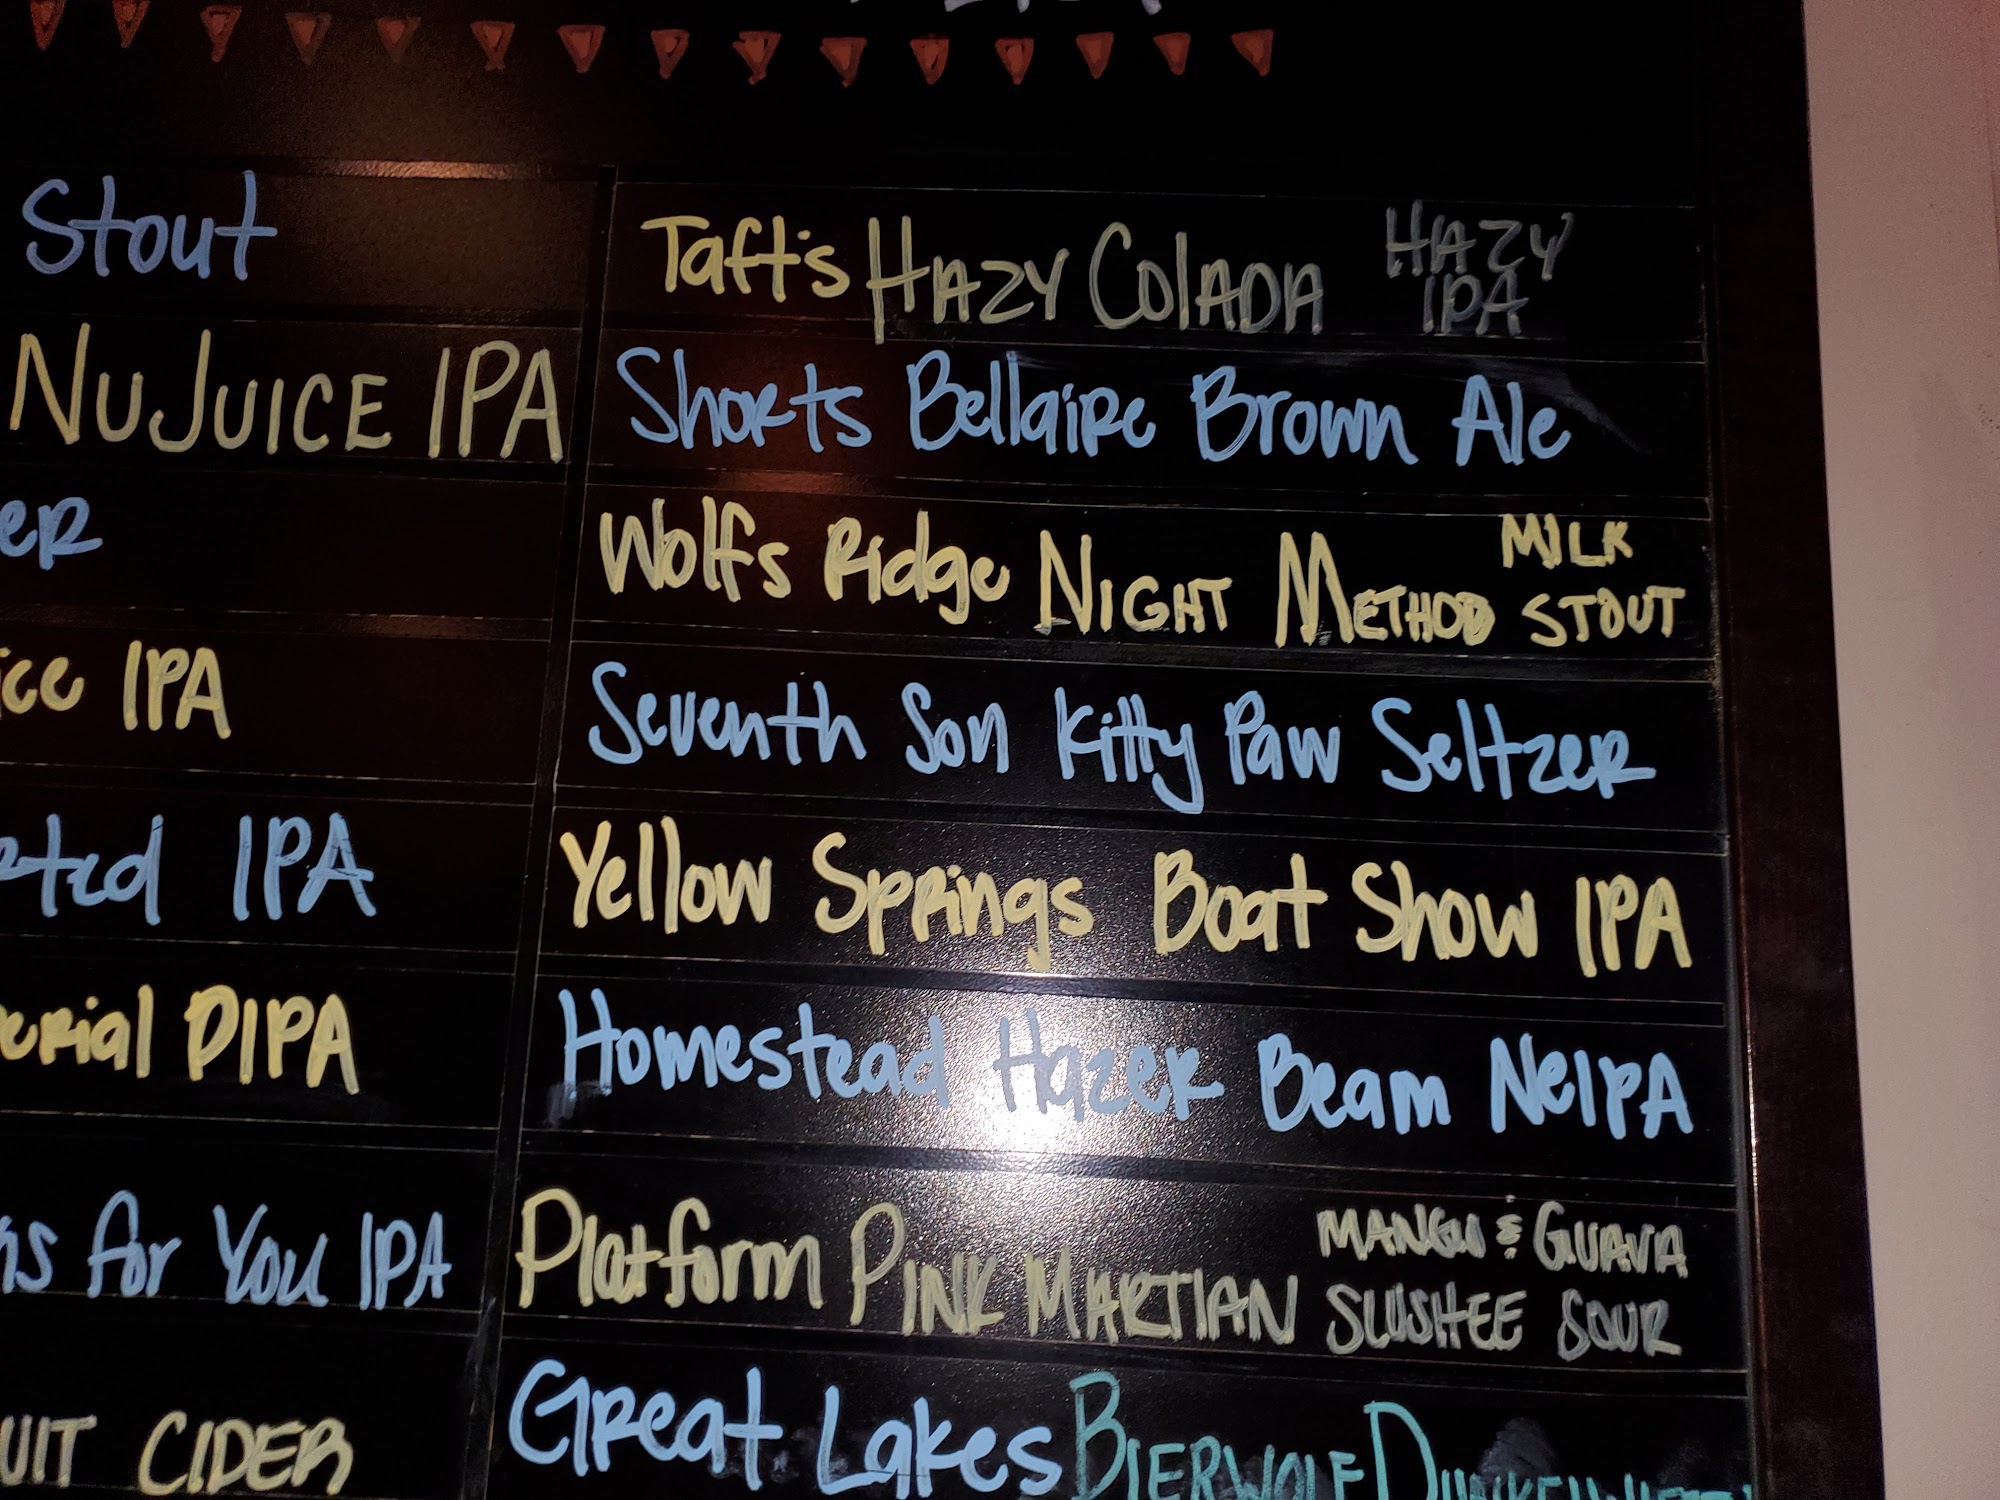 Stout
NUJUICE IPA
IPA
IPA
DIPA
for You IPA
CIDER
Taft's HAZY COLADA HAZY IPA
Shorts Bellaire Brown Ale
Wolfs Ridge NIGHT METHOD MILK STOUT
Seventh Son Kitty Paw Seltzer
Yellow Springs Boat Show IPA
Homestead Hazer Beam NeIPA
Platform PINK MARTIAN MANGO & GUAVA SLUSHEE SOUR
Great Lakes BIERWOLF